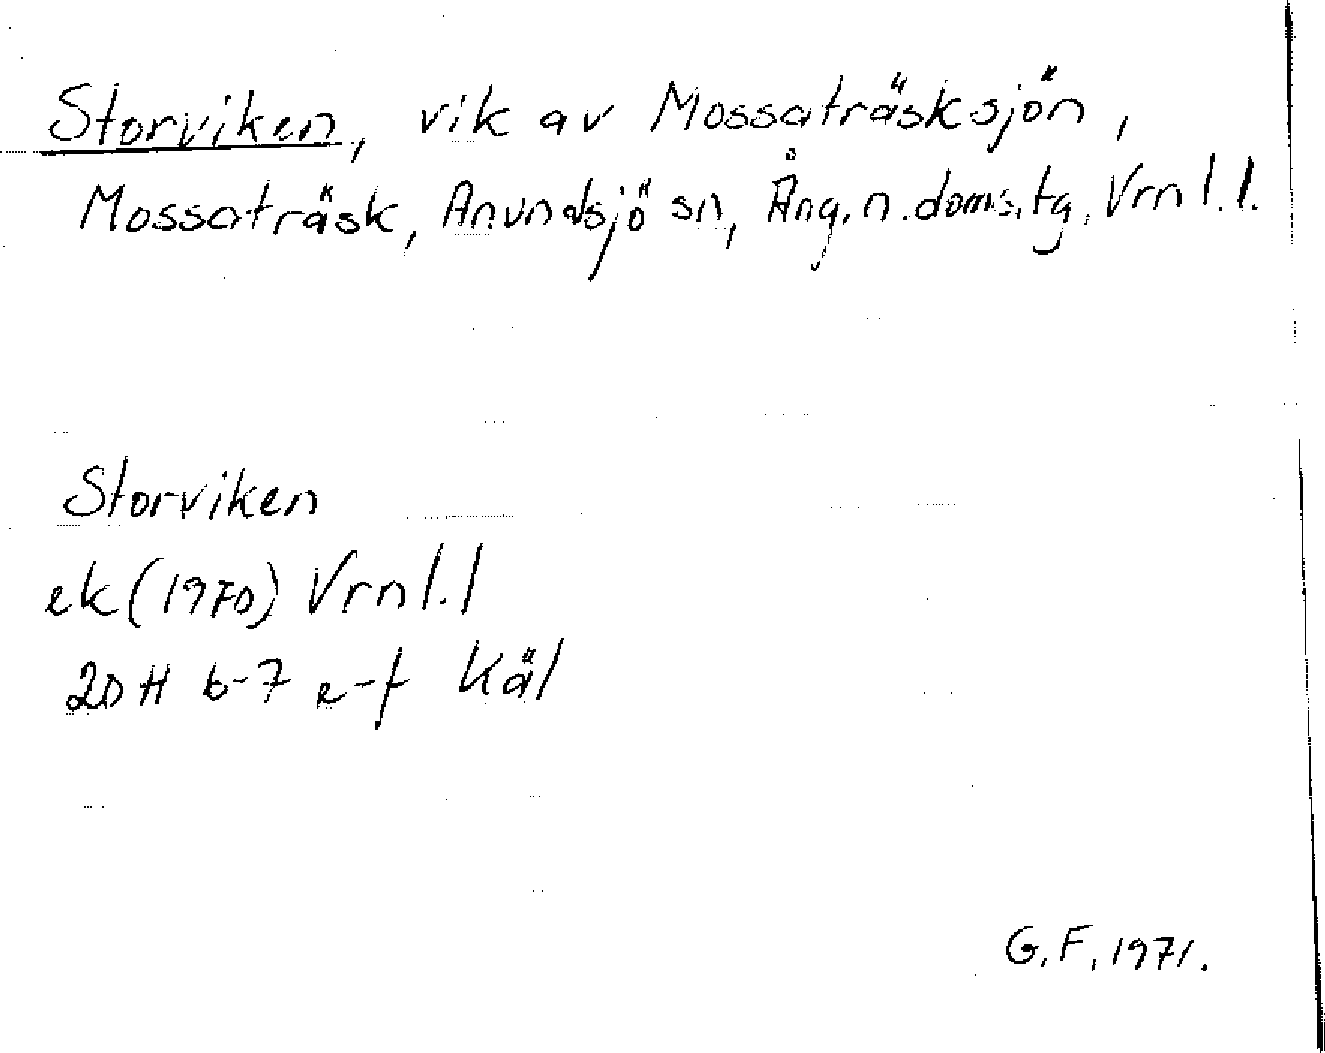 Storviken, vik av Mossaträsksjön,
Mossaträsk, Anundsjö sn, Ång. n. doms. tg, Vrnl.l.
Storviken
ek (1970) Vrnl.l
20 H 6-7 e-f Käl
G.F. 1971.